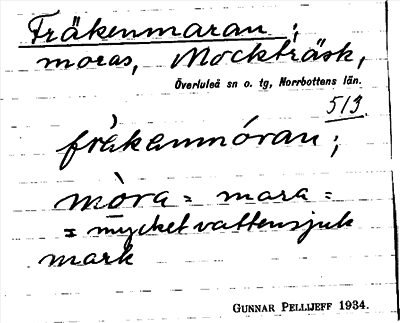 Fräkenmaran;
moras, Mockträsk,
Överluleå sn o. tg, Norrbottens län.
513.
fràkanmóran;
mòra = mara =
= mycket vattensjuk
mark
GUNNAR PELLIJEFF 1934.